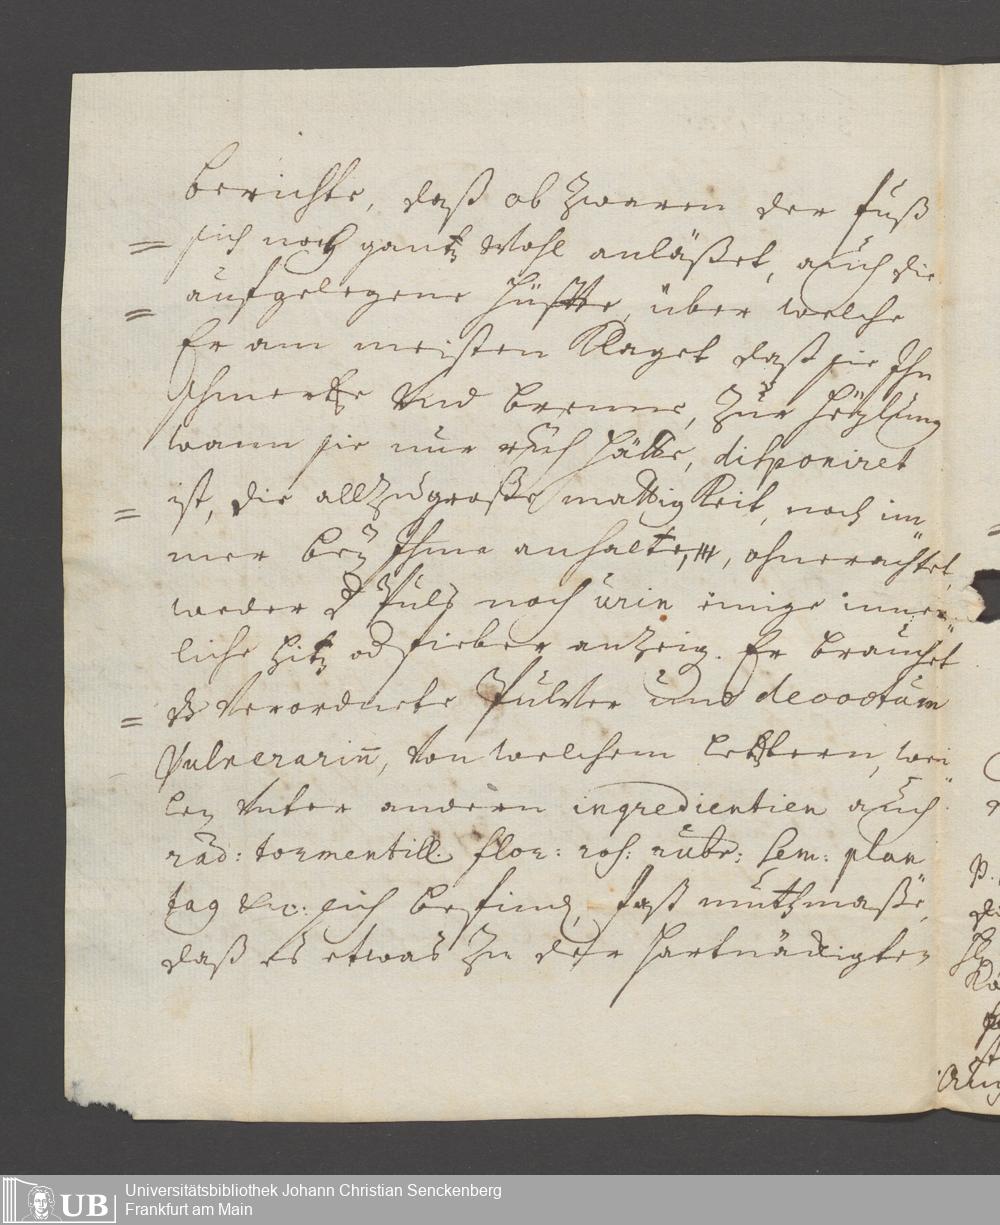 berichte, daß ob zwaren der Fuß
= sich noch gantz wohl anläßet, auch die
= aufgelegene Hüffte, über welche
Er am meisten klaget daß sie Ihn
schmertze und brenne, zur Heÿlung
wann sie nur ruh hätte, disponiret
= ist, die allzugroße mattigkeit, noch im
mer beÿ Ihme anhalte, ohnerachtet
weder d Puls noch urin einige inner=
liche Hitz od fieber anzeig. Er braucht
= dz verordnete Pulver und decoctum
Vulnerariũ, von welchem letztern, wei
len unter andern ingredientien auch
rad: tormentill. flor: ros: rubr: sem: plan
tag etc: sich befind, fast muthmaße,
daß es etwas zu der hartnäckigten
UB
Universitätsbibliothek Johann Christian Senckenberg
Frankfurt am Main